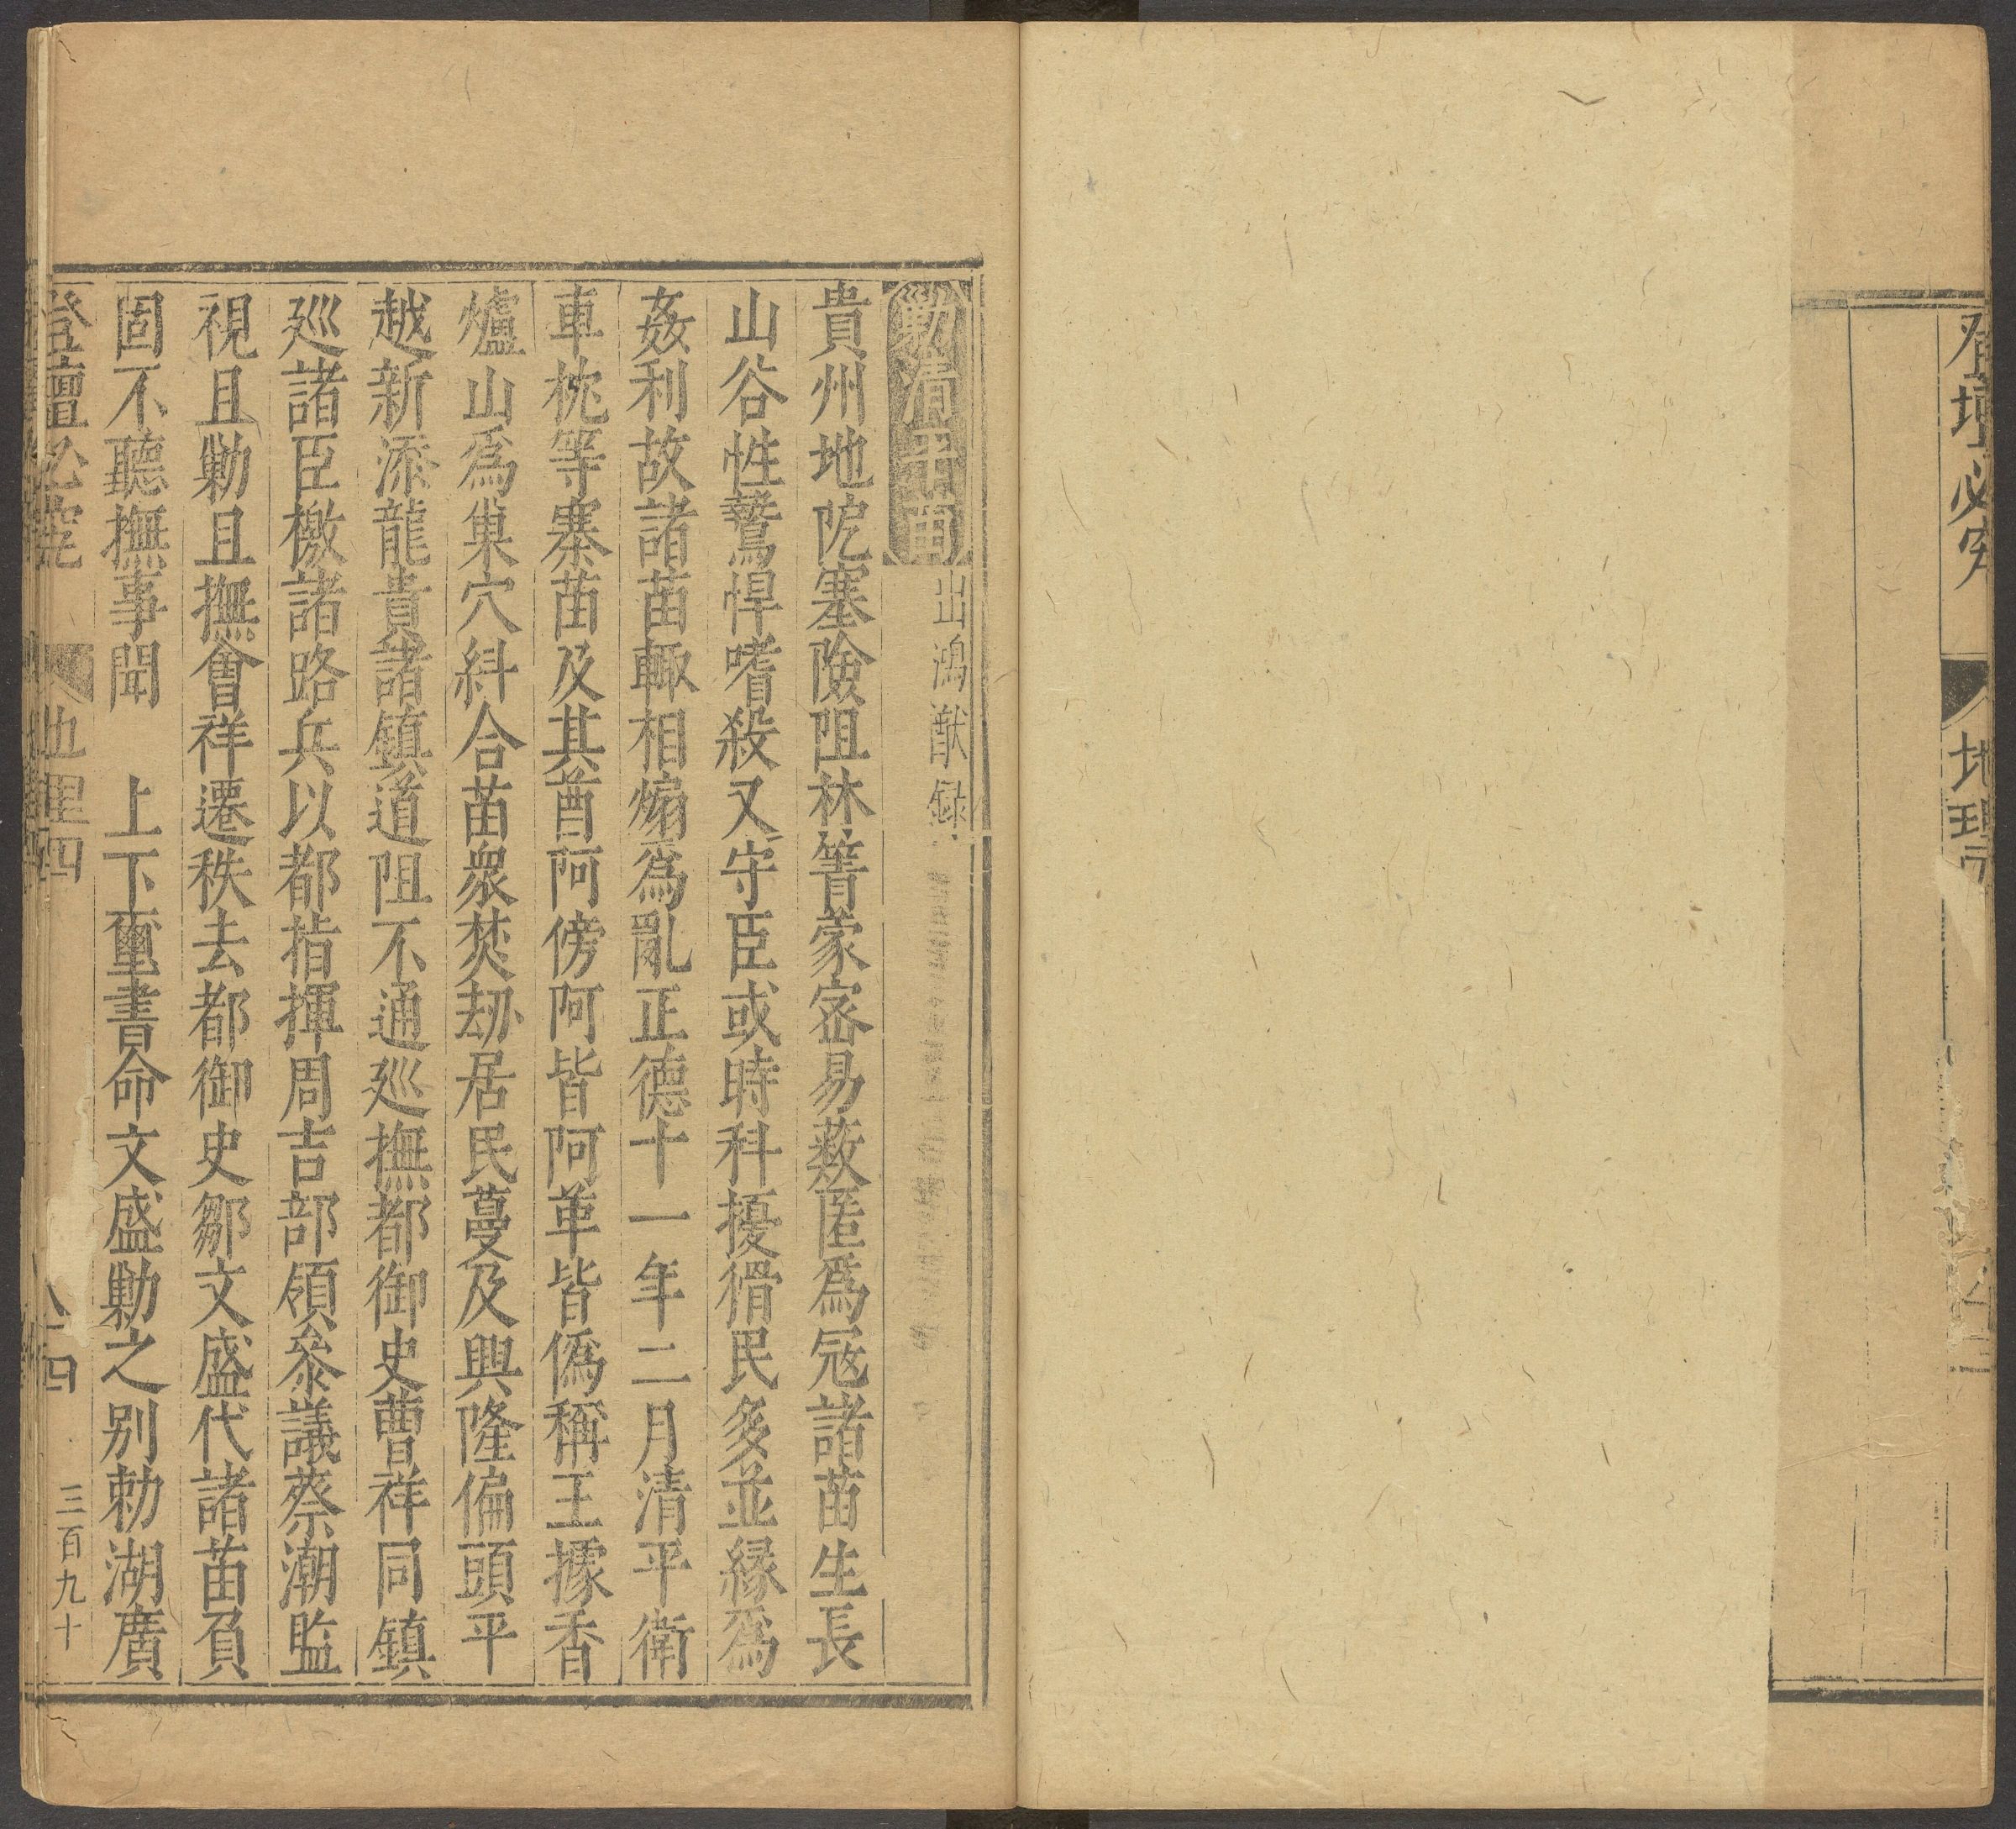 登壇必究 地理四
勦清平苗 出鴻猷録
貴州地阨塞險阻林箐蒙密易薮匿爲冦諸苗生長
山谷性鷙悍嗜殺又守臣或時科擾猾民多並緣爲
姦利故諸苗輙相煽爲亂正德十一年二月清平衛
車枕等寨苗及其酋阿傍阿皆阿革皆僞稱王據香
爐山爲巢穴糾合苗衆焚刼居民蔓及興隆偏頭平
越新添龍貴諸鎮道阻不通廵撫都御史曹祥同鎮
廵諸臣檄諸路兵以都指揮周吉部領叅議蔡潮監
視且勦且撫會祥遷秩去都御史鄒文盛代諸苗負
固不聽撫事聞 上下璽書命文盛勦之别勅湖廣
登壇必究 地理四 八十四 三百九十